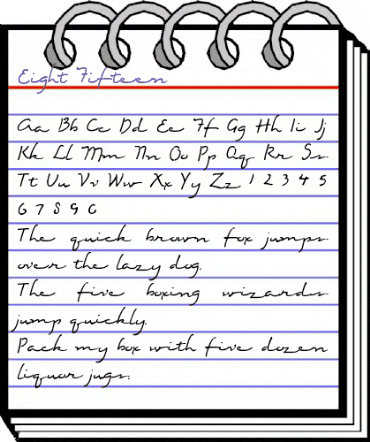 Eight Fifteen
Aa Bb Cc Dd Ee Ff Gg Hh Ii Jj
Kk Ll Mm Nn Oo Pp Qq Rr Ss
Tt Uu Vv Ww Xx Yy Zz 1 2 3 4 5
6 7 8 9 0
The quick brown fox jumps
over the lazy dog.
The five boxing wizards
jump quickly.
Pack my box with five dozen
liquor jugs.